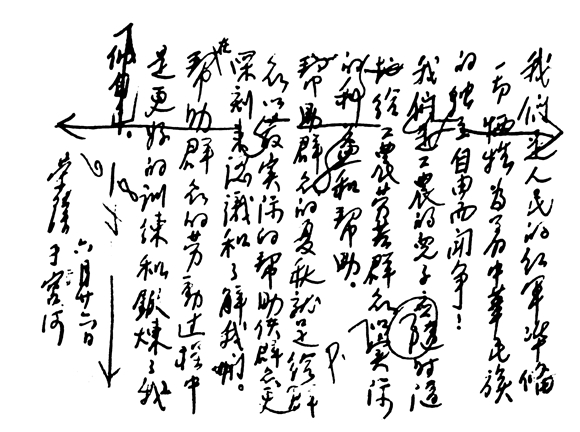 我们是人民的红军准备
一切牺牲为着中华民族
的独立自由而闘争！
我们是工农的兒子应随时随
地给工農劳苦群众以实际
的利益和帮助。
帮助群众的夏秋就是给群
众以最实际的帮助使群众更
深刻来認識和了解我们。
在帮助群众的劳动过程中
是更好的训練和鍛煉了我
们自己。
六月廿六日
于宫河